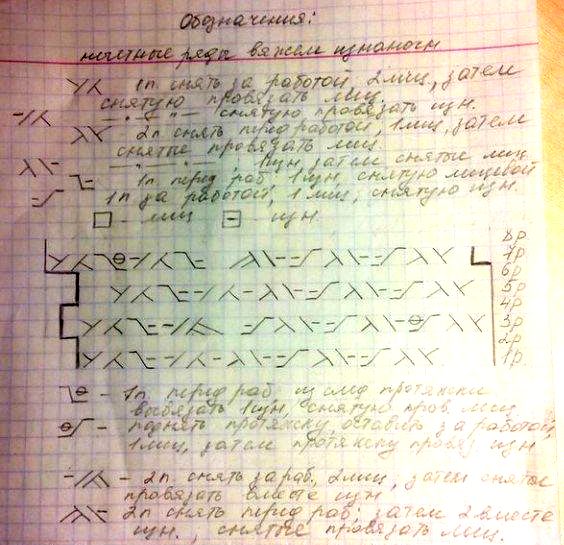 Обозначения:
нечетные ряды вяжем изнаночн
1п снять за работой 2лиц, затем
снятую провязать лиц.
— " — " — " — снятую провязать изн.
2п снять перед работой, 1лиц, затем
снятые провязать лиц.
— " — " — 1изн, затем снятые лиц
1п перед раб, 1изн, снятую лицевой
1п за работой, 1лиц, снятую изн.
- лиц - изн.
8р
7р
6р
5р
4р
3р
2р
1р
- 1п перед раб, из след протяжки
вывязать 1изн, снятую пров лиц
- поднять протяжку, оставить за работой,
1лиц, затем протяжку провяз изн
- 2п снять за раб, 2лиц, затем снятые
провязать вместе изн
- 2п снять перед раб, затем 2вместе
изн., снятые провязать лиц.